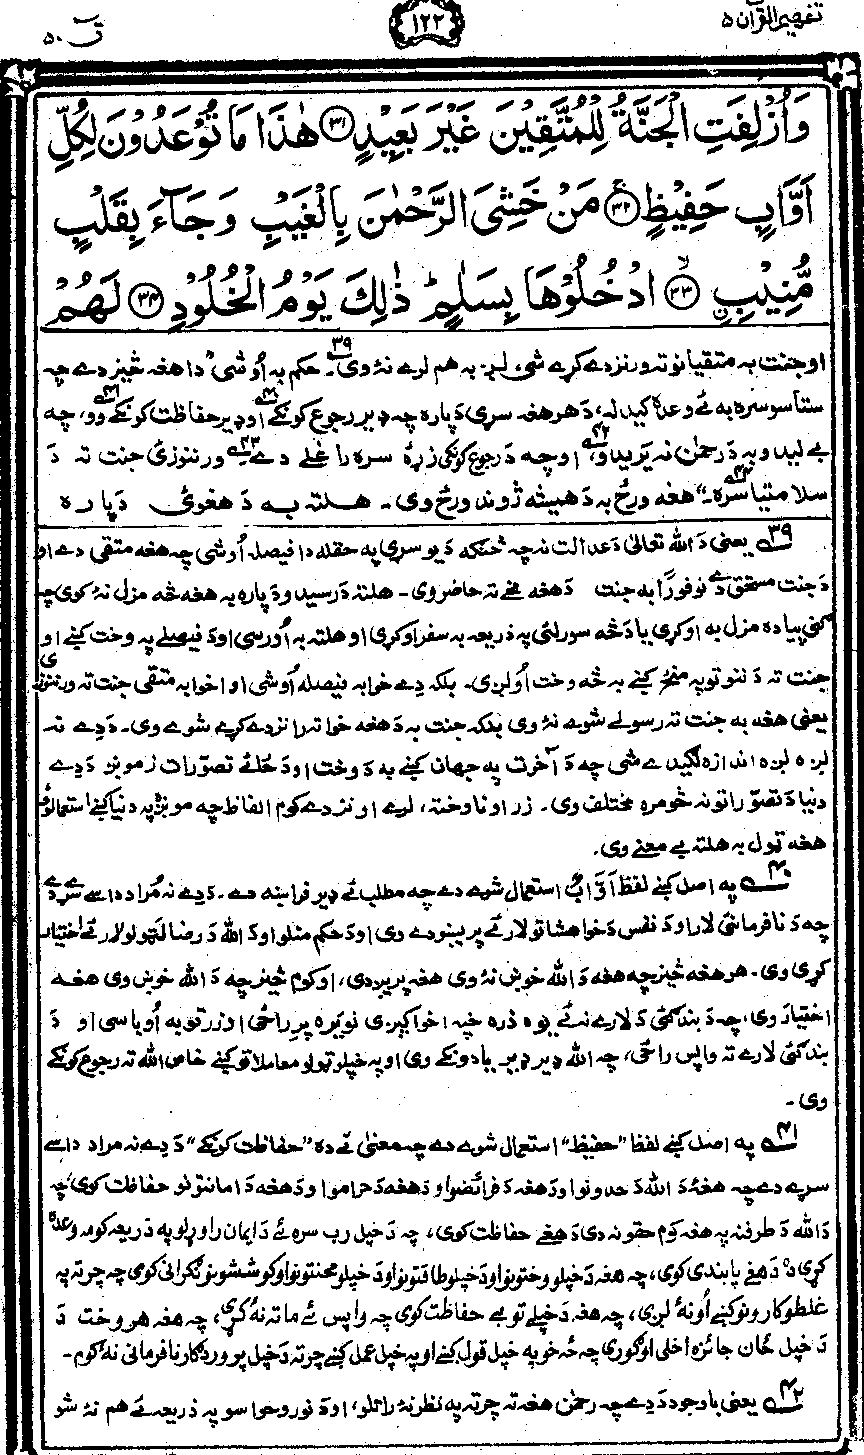 تفهیم القرآن ۵
۱۲۲
ق ۵۰
وَاُزْلِفَتِ الْجَنَّةُ لِلْمُتَّقِيْنَ غَيْرَ بَعِيْدٍ ﴿۳۱﴾ هٰذَا مَا تُوْعَدُوْنَ لِكُلِّ
اَوَّابٍ حَفِيْظٍ ﴿۳۲﴾ مَنْ خَشِىَ الرَّحْمٰنَ بِالْغَيْبِ وَجَآءَ بِقَلْبٍ
مُّنِيْبِ ﴿۳۳﴾ ادْخُلُوْهَا بِسَلٰمٍ ؕ ذٰلِكَ يَوْمُ الْخُلُوْدِ ﴿۳۴﴾ لَهُمْ
او جنت به متقیانو ته ورنزدے کړے شی، لرے به هم لرے نۀ وی۔ ۳۹ حکم به اُوشی ”دا هغه څیز دے چه
ستاسو سره به ئے وعده کیدله، د هر هغه سړی دَپاره چه ډیر رجوع کونکے ۴۰ او ډیر حفاظت کونکے وو، ۴۱ چه
بے لیدو به دَ رحمٰن نه یریدو، ۴۲ او چه دَ رجوع کونکی زړۀ سره راغلے دے۔ ۴۳ ورننوزئ جنت ته دَ
سلامتیا سره۔ ۴۴ “ هغه ورځ به دَ همیشه ژوند ورځ وی۔ هلته به دَ هغوئ دَپاره
۳۹ یعنی دَ الله تعالیٰ دَ عدالت نه چه څنګه دَ یو سړی په حقله دا فیصله اُوشی چه هغه متقی دے او
دَ جنت مستحق دے نو فوراً به جنت دَ هغه مخے ته حاضر وی۔ هلته دَ رسیدو دَپاره به هغه څه مزل نۀ کوی چه
ګنی پیاده مزل به اوکړی یا دَ څه سورلئ په ذریعه به سفر اوکړی او هلته به اُورسی او دَ فیصلے په وخت کښے او
جنت ته دَ ننوتو په منځ کښے به څه وخت اُولږی۔ بلکه دے خوا به فیصله اُوشی او اخوا به متقی جنت ته ورننوزی
یعنی هغه به جنت ته رسولے شوے نۀ وی بلکه جنت به دَ هغه خوا ته رانزدے کړے شوے وی۔ دَ دے نه
لږه لږه اندازه لګیدے شی چه دَ آخرت په جهان کښے به دَ وخت او دَ ځائے تصوّرات زمونږ دَ دے
دنیا دَ تصوّراتو نه څومره مختلف وی۔ زر او ناوخته، لرے او نزدے کوم الفاظ چه مونږ په دنیا کښے استعمالوؤ
هغه ټول به هلته بے معنے وی۔
۴۰ په اصل کښے لفظ اَوَّابْ استعمال شوے دے چه مطلب ئے ډیر فراخه دے۔ دَ دے نه مُراد داسے سړے دے
چه دَ نافرمانئ لار او دَ نفس دَ خواهشاتو لار ئے پریښودے وی او دَ حکم منلو او دَ الله دَ رضا لټولو لار ئے اختیار
کړی وی۔ هر هغه څیز چه هغه دَ الله خوښ نۀ وی هغه پریږدی، او کوم څیز چه دَ الله خوښ وی هغه
اختیار وی، چه دَ بندګئ دَ لارے نه ئے یوه ذره خپه اخوا کیږدی نو یره پرے راځی او زر توبه اُوباسی او دَ
بندګئ لارے ته واپس راځی، چه الله ډیر ډیر یادونکے وی او په خپلو ټولو معاملاتو کښے خاص الله ته رجوع کونکے
وی۔
۴۱ په اصل کښے لفظ ”حفیظ“ استعمال شوے دے چه معنیٰ ئے ده ”حفاظت کونکے“ دَ دے نه مراد داسے
سړے دے چه هغه دَ الله دَ حدونو او دَ هغه دَ فرائضو او دَ هغه دَ حرامو او دَ هغه دَ امانتونو حفاظت کوی، چه
دَ الله دَ طرفنه په هغه کوم حقونه دی دَ هغے حفاظت کوی، چه دَ خپل رب سره ئے دَ ایمان راوړلو په ذریعه کومه وعده
کړی ده دَ هغے پابندی کوی، چه هغه دَ خپلو وختونو او دَ خپلو طاقتونو او دَ خپلو محنتونو او کوششونو نګرانی کوی چه چرته په
غلطو کارونو کښے اُونۀ لږی، چه هغه دَ خپلے توبے حفاظت کوی چه واپس ئے ماته نۀ کړی، چه هغه هر وخت دَ
دَ خپل ځان جائزه اخلی او ګوری چه څه خو په خپل قول کښے او په خپل عمل کښے چرته دَ خپل پروردګار نافرمانی نۀ کوم۔
۴۲ یعنی باوجود دَ دے چه رحمٰن هغه ته چرته په نظر نۀ راتلو، او دَ نورو حواسو په ذریعه ئے هم نۀ شو